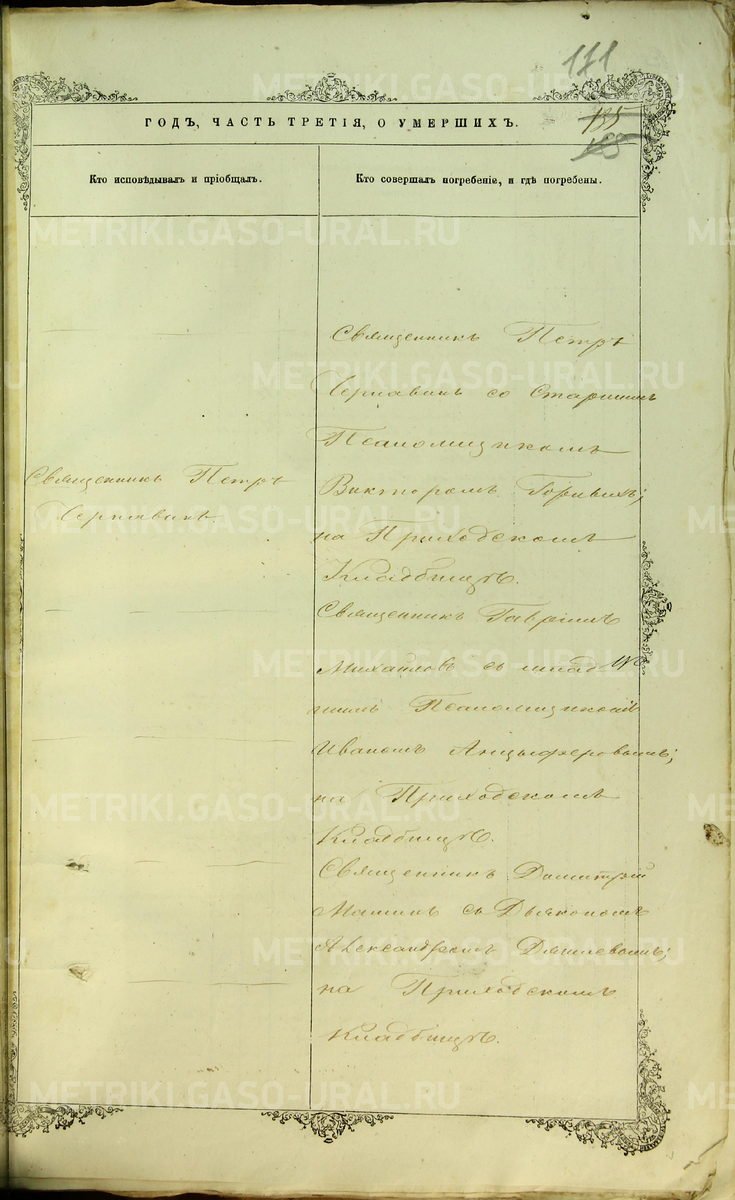 171
135
ГОДЪ, ЧАСТЬ ТРЕТІЯ, О УМЕРШИХЪ.
Кто исповѣдывалъ и пріобщалъ.
Кто совершалъ погребеніе, и гдѣ погребены.
Священникъ Петръ
Чернавинъ.
Священникъ Петръ
Чернавинъ со Старшимъ
Псаломщикомъ
Викторомъ
на Приходскомъ
Кладбищѣ.
Священникъ Гавріилъ
Михайловъ съ млад-
шимъ Псаломщикомъ
Иваномъ Анцыферовымъ;
на Приходскомъ
Кладбищѣ.
Священникъ Димитрій
Машинъ съ Дьякономъ
Александромъ
на Приходскомъ
Кладбищѣ.
METRIKI.GASO-URAL.RU